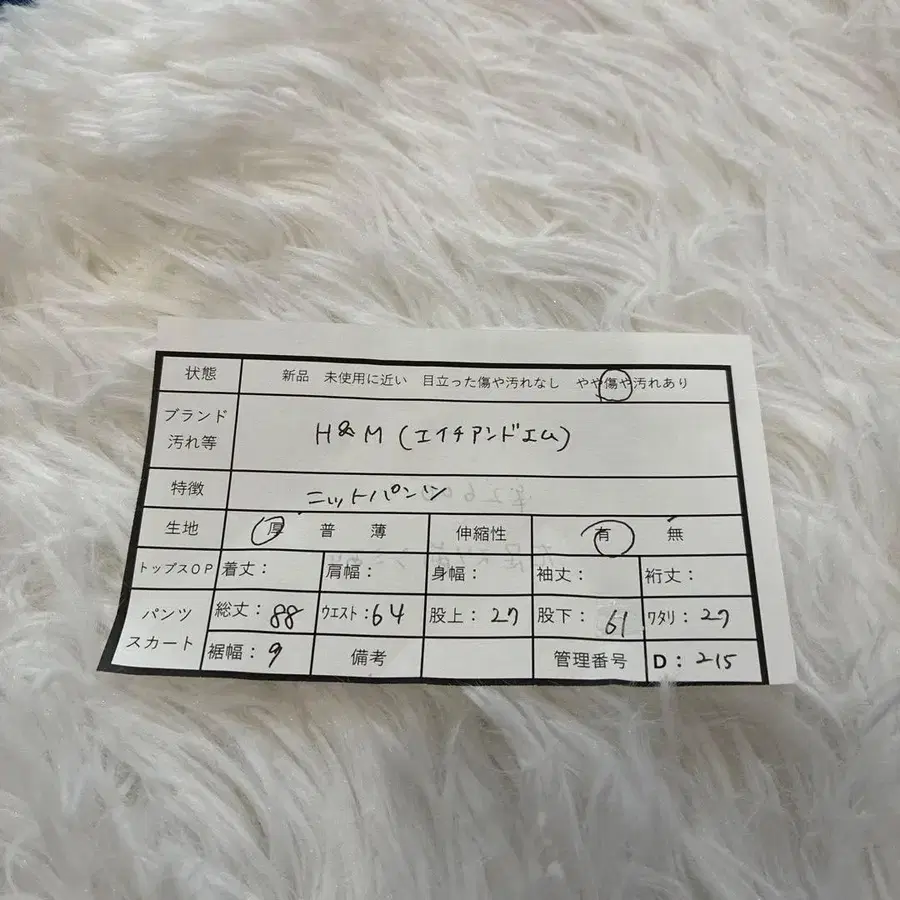 状態 新品 未使用に近い 目立った傷や汚れなし やや傷や汚れあり
ブランド
汚れ等
H&M (エイチアンドエム)
特徴 ニットパンツ
生地 厚 普 薄 伸縮性 有 無
トップスOP 着丈: 肩幅: 身幅: 袖丈: 裄丈:
パンツ
スカート
総丈:88 ウエスト:64 股上:27 股下:61 ワタリ:27
裾幅:9 備考 管理番号 D:215